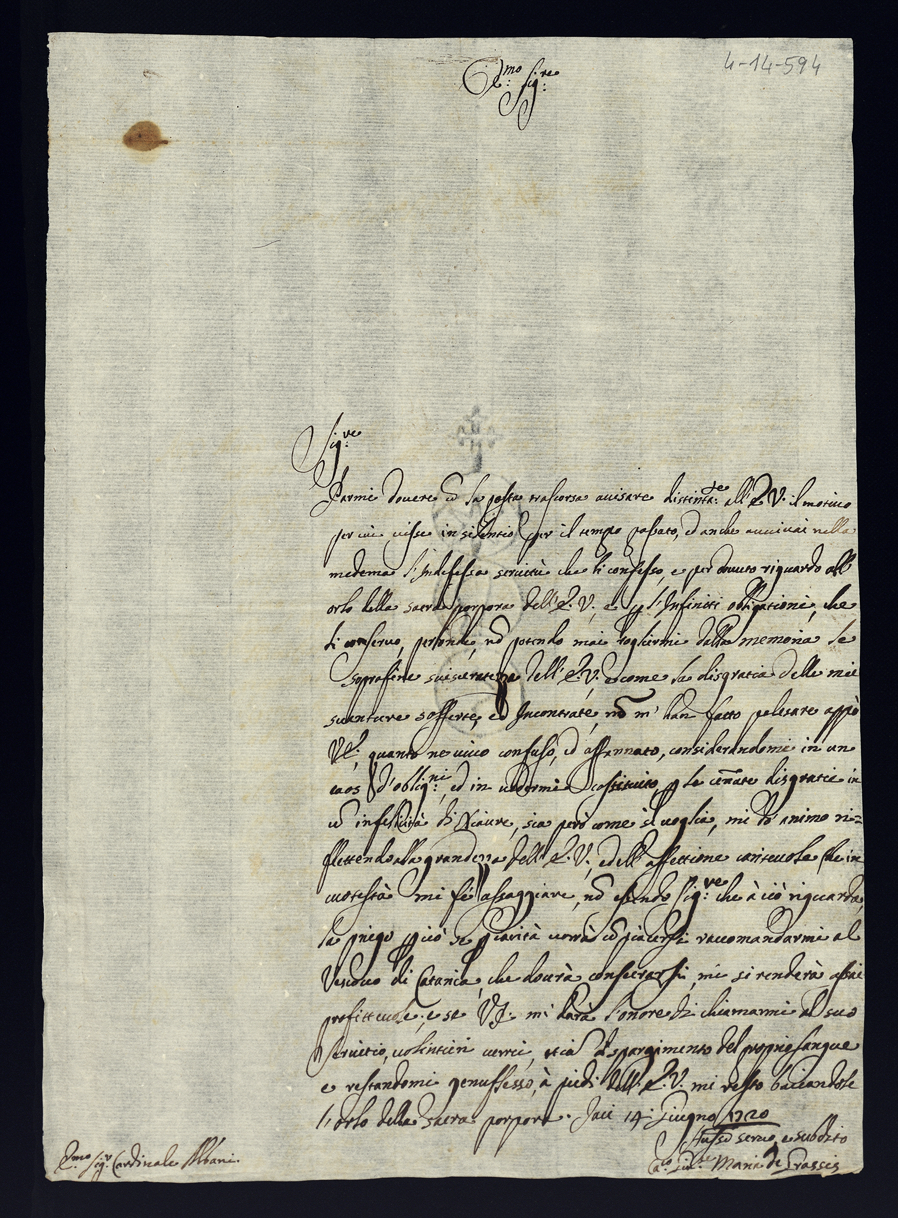 4-14-594
Em:mo Sig:re
Sig:re
Parmi dovere cō la posta trascorsa avisare distinta:te all'E.V. il motivo
per cui visse in silentio per il tempo passato, ed anche avvivai nella
medema l'indefessa servitù che li confesso, e per dovuto riguardo all
orlo della sacra porpora dell'E.V., e p l'Infiniti obligationi, che
li conservo, nō potendo mai togliermi dalla memoria le
soprafine sviseratezze dell'E.V., e come la disgratia delle mie
sventure sofferte, ed Incontrate, nō m'han fatto palesare appò
V.E., quanto ne vivo confuso, ed affannato, considerandomi in un
caos d'oblig:ni, ed in vedermi costituito, p le cēnate disgratie in
infelicità di giacere, sia però come si voglia, mi dò animo ri=
flettendo alla grandezza dell'E.V., ed all'affettione che in
mi fè assaggiare, nō essendo Sig:re che à ciò riguarda,
la priego p ciò se p carità verrà cō piacersi raccomandarmi al
Vescovo di Catania, che dovrà consecrarsi, mi si renderà assai
profittevole, e se V.E. mi darà l'onore di chiamarmi al suo
servitio, volentieri verrei, etiā à spargimento del proprio sangue
e restandomi genuflesso, à piedi dell'E.V. mi resto baciandole
l'orlo della sacra porpora. Jaci 14: Giugno 1720
servo, e subdito
Maria de Grassis
E:mo Sig:r Cardinale Albani